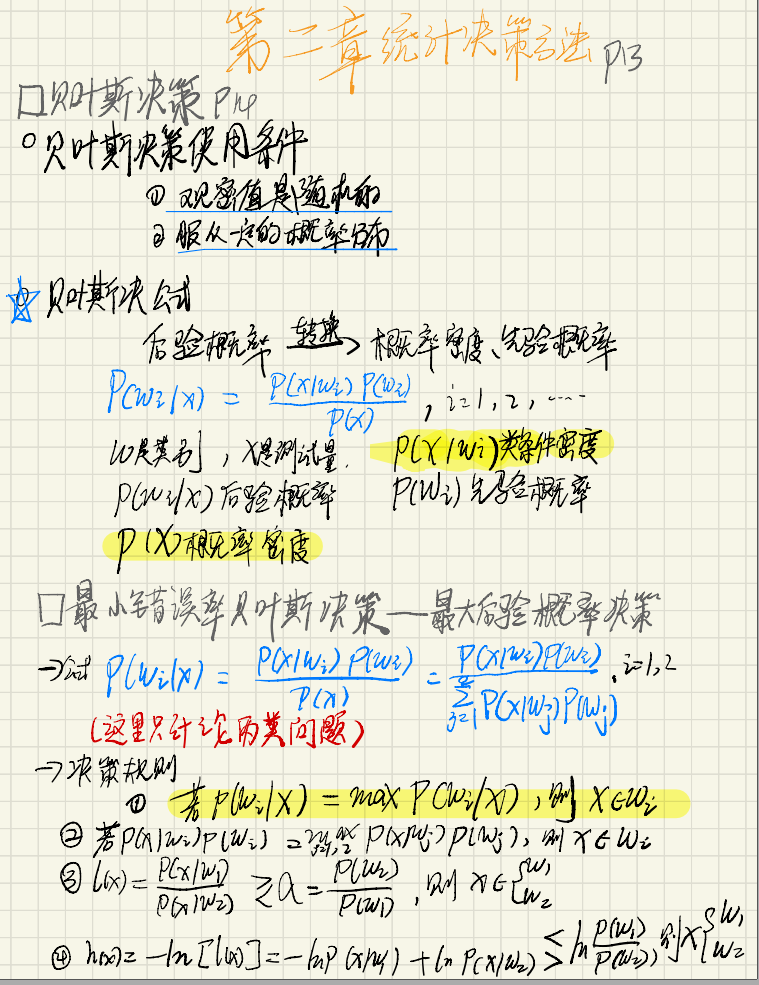 第二章统计决策方法 P13
□贝叶斯决策 P14
○贝叶斯决策使用条件
① 观察值是随机的
② 服从一定的概率分布
贝叶斯决公式
后验概率 转换→ 概率密度、先验概率
P(wi|x) = P(x|wi) P(wi) / P(x) , i=1, 2, ……
w是类别, x是测试量. P(x|wi)类条件密度
P(wi|x)后验概率 P(wi)先验概率
P(x)概率密度
□最小错误率贝叶斯决策——最大后验概率决策
→公式 P(wi|x) = P(x|wi) P(wi) / P(x) = P(x|wi)P(wi) / Σ(j=1→2) P(x|wj)P(wj) , i=1,2
(这里只讨论两类问题)
→决策规则
① 若P(wi|x) = max P(wi|x), 则 x∈wi
② 若P(x|wi)P(wi) = max(j=1,2) P(x|wj)P(wj), 则 x∈wi
③ l(x) = P(x|w1) / P(x|w2) ≷ λ = P(w2) / P(w1) , 则 x∈{w1 w2
④ h(x) = -ln[l(x)] = -lnP(x|w1) + ln P(x|w2) ≶ ln P(w1) / P(w2), 则x{w1 w2